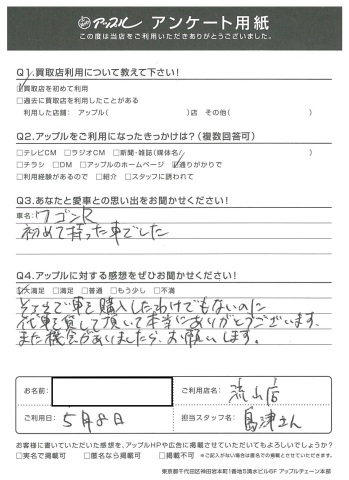 アップル アンケート用紙
この度は当店をご利用いただきありがとうございました。
Q1.買取店利用について教えて下さい!
□買取店を初めて利用
□過去に買取店を利用したことがある
利用した店舗: アップル( )店 その他( )
Q2.アップルをご利用になったきっかけは?(複数回答可)
□テレビCM □ラジオCM □新聞・雑誌(媒体名 )
□チラシ □DM □アップルのホームページ □通りがかりで
□利用経験があるので □紹介 □スタッフに誘われて
Q3.あなたと愛車との思い出をお聞かせください!
車名: ワゴンR
初めて持った車でした
Q4.アップルに対する感想をぜひお聞かせください!
□大満足 □満足 □普通 □もう少し □不満
そちらで車を購入したわけでもないのに
代車を貸して頂いて本当にありがとうございます。
また機会がありましたら、お願いします。
お名前:
ご利用店名: 流山店
ご利用日: 5月8日
担当スタッフ名: 島津さん
お客様に書いていただいた感想を、アップルHPや広告に掲載させていただいてもよろしいでしょうか?
□実名で掲載可 □匿名なら掲載可 □掲載不可 ※ご記入がない場合は匿名での掲載とさせていただきます。
東京都千代田区神田岩本町1番地5清水ビル6F アップルチェーン本部